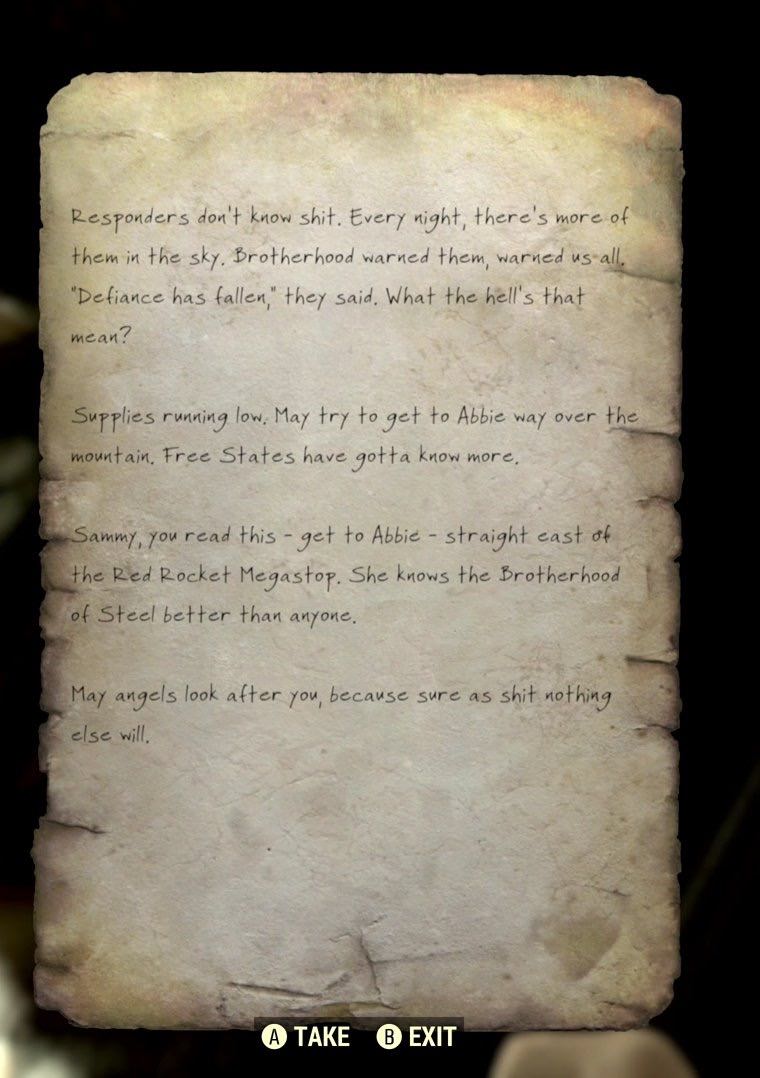 Responders don't know shit. Every night, there's more of
them in the sky. Brotherhood warned them, warned us all.
"Defiance has fallen," they said. What the hell's that
mean?
Supplies running low. May try to get to Abbie way over the
mountain. Free States have gotta know more.
Sammy, you read this - get to Abbie - straight east of
the Red Rocket Megastop. She knows the Brotherhood
of Steel better than anyone.
May angels look after you, because sure as shit nothing
else will.
A TAKE B EXIT